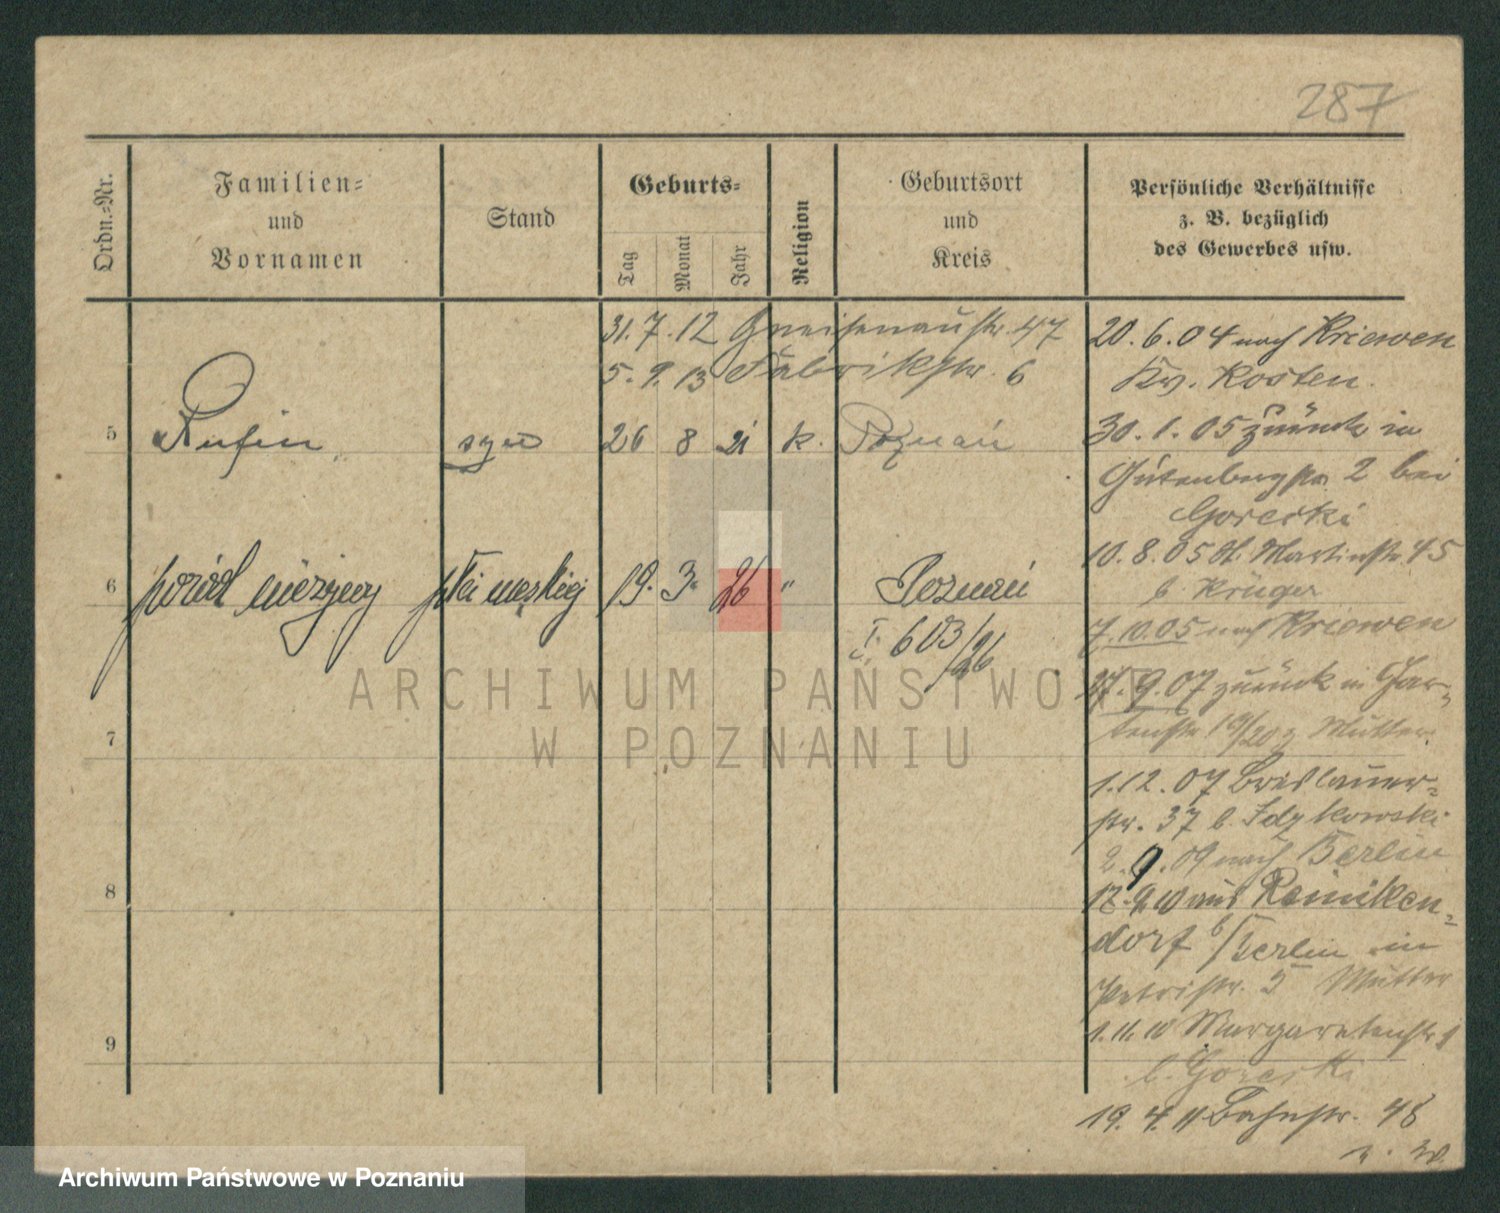 287
Ordn.=Nr.
Familien=
und
Vornamen
Stand
Geburts=
Tag
Monat
Jahr
Religion
Geburtsort
und
Kreis
Persönliche Verhältnisse
z. B. bezüglich
des Gewerbes usw.
31. 7. 12 Gneisenaustr. 47
5. 9. 13 Fabrikstr. 6
5 Rufin syn 26 8 21 k. Poznań
6 poród nieżywy płci męskiej 19. 3. 26 " Poznań
603/26
7
8
9
20. 6. 04 nach Kriewen
Kr. Kosten.
30. 1. 05 zurück in
Gutenbergstr. 2 bei
Gorecki
10. 8. 05 St. Martinstr. 45
b. Krüger
7. 10. 05 nach Kriewen
27. 9. 07 zurück in Gar-
tenstr. 19/20 z. Mutter
1. 12. 07 Breslauer-
str. 37 b. Idzikowski
2. 9. 09 nach Berlin
12. 9. 10 aus Reiniken-
dorf b/Berlin in
Petristr. 5 Mutter
1. 11. 10 Margaretenstr.
b. Gorecki
19. 4. 11 Bahnstr. 48
ARCHIWUM PAŃSTWOWE
W POZNANIU
Archiwum Państwowe w Poznaniu